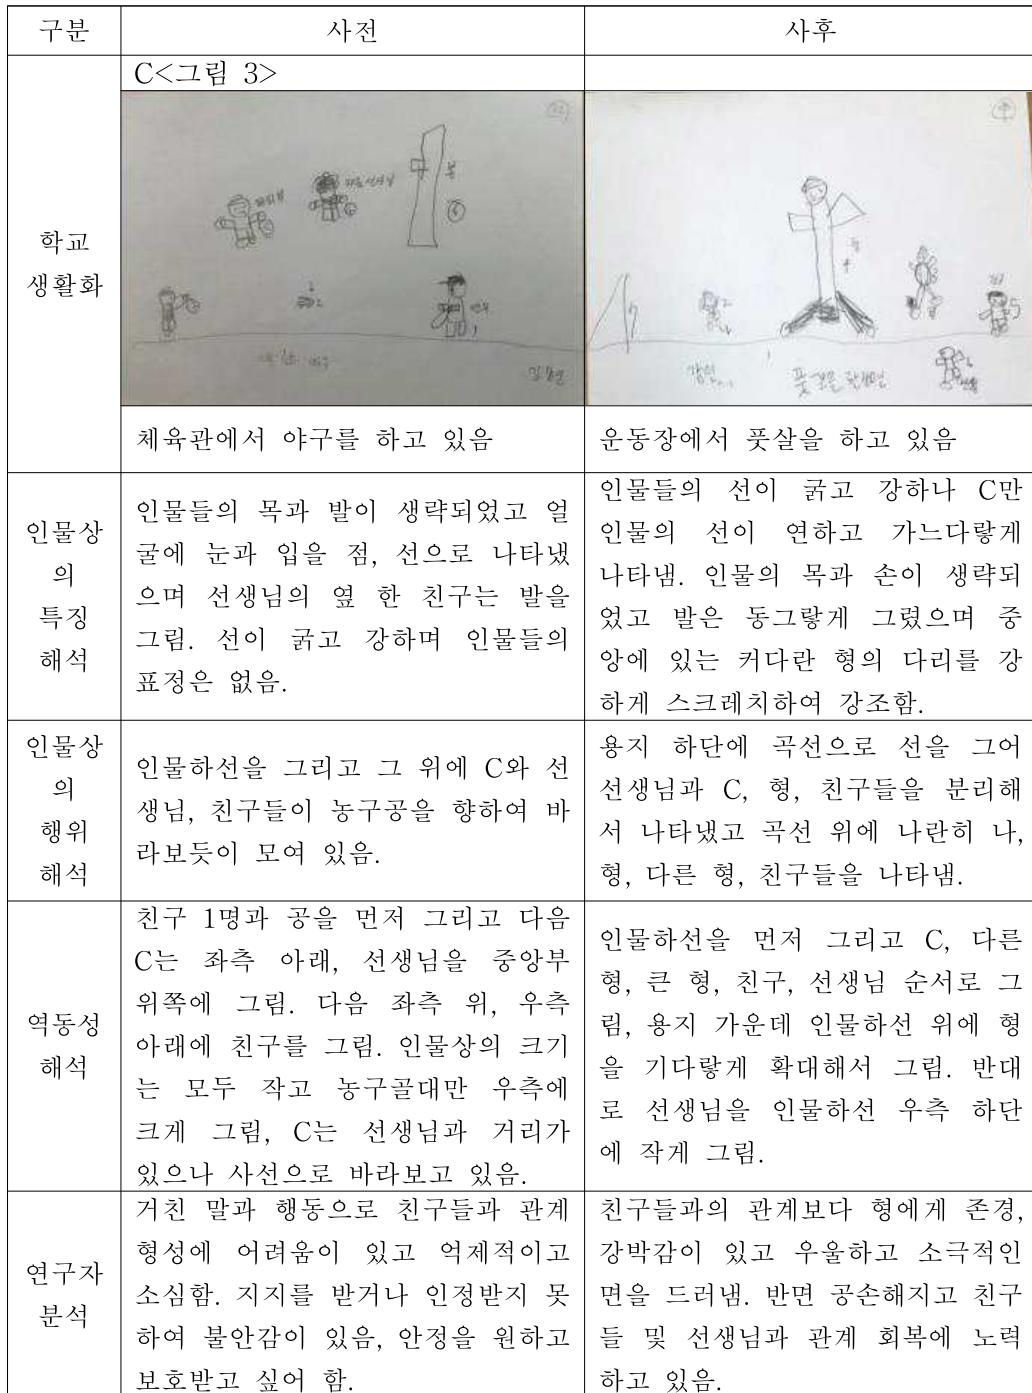 구분 사전 사후
C<그림 3>
학교
생활화
체육관에서 야구를 하고 있음
운동장에서 풋살을 하고 있음
인물상
의
특징
해석
인물들의 목과 발이 생략되었고 얼
굴에 눈과 입을 점, 선으로 나타냈
으며 선생님의 옆 한 친구는 발을
그림. 선이 굵고 강하며 인물들의
표정은 없음.
인물들의 선이 굵고 강하나 C만
인물의 선이 연하고 가느다랗게
나타냄. 인물의 목과 손이 생략되
었고 발은 동그랗게 그렸으며 중
앙에 있는 커다란 형의 다리를 강
하게 스크레치하여 강조함.
인물상
의
행위
해석
인물하선을 그리고 그 위에 C와 선
생님, 친구들이 농구공을 향하여 바
라보듯이 모여 있음.
용지 하단에 곡선으로 선을 그어
선생님과 C, 형, 친구들을 분리해
서 나타냈고 곡선 위에 나란히 나,
형, 다른 형, 친구들을 나타냄.
역동성
해석
친구 1명과 공을 먼저 그리고 다음
C는 좌측 아래, 선생님을 중앙부
위쪽에 그림. 다음 좌측 위, 우측
아래에 친구를 그림. 인물상의 크기
는 모두 작고 농구골대만 우측에
크게 그림, C는 선생님과 거리가
있으나 사선으로 바라보고 있음.
인물하선을 먼저 그리고 C, 다른
형, 큰 형, 친구, 선생님 순서로 그
림, 용지 가운데 인물하선 위에 형
을 기다랗게 확대해서 그림. 반대
로 선생님을 인물하선 우측 하단
에 작게 그림.
연구자
분석
거친 말과 행동으로 친구들과 관계
형성에 어려움이 있고 억제적이고
소심함. 지지를 받거나 인정받지 못
하여 불안감이 있음, 안정을 원하고
보호받고 싶어 함.
친구들과의 관계보다 형에게 존경,
강박감이 있고 우울하고 소극적인
면을 드러냄. 반면 공손해지고 친구
들 및 선생님과 관계 회복에 노력
하고 있음.